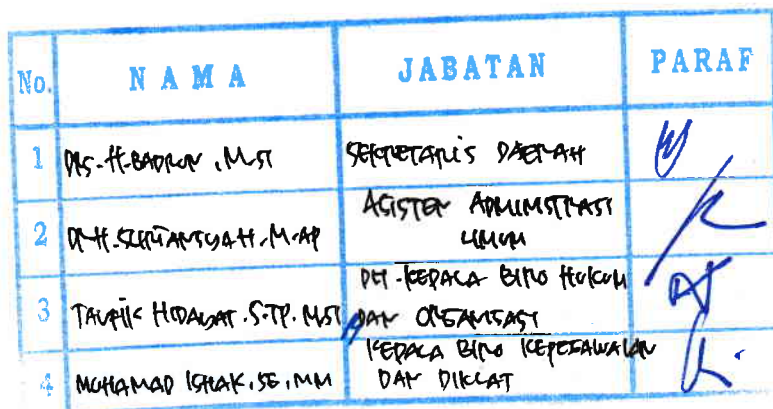 No. NAMA JABATAN PARAF
1 DRS. H. BADRUN, M.SI SEKRETARIS DAERAH
2 DR. H. SURIANSYAH. M.AP ASISTEN ADMINISTRASI
UMUM
3 TAUFIK HIDAYAT. S.TP. M.SI PLT. KEPALA BIRO HUKUM
DAN ORGANISASI
4 MOHAMAD ISHAK, SE, MM KEPALA BIRO KEPEGAWAIAN
DAN DIKLAT